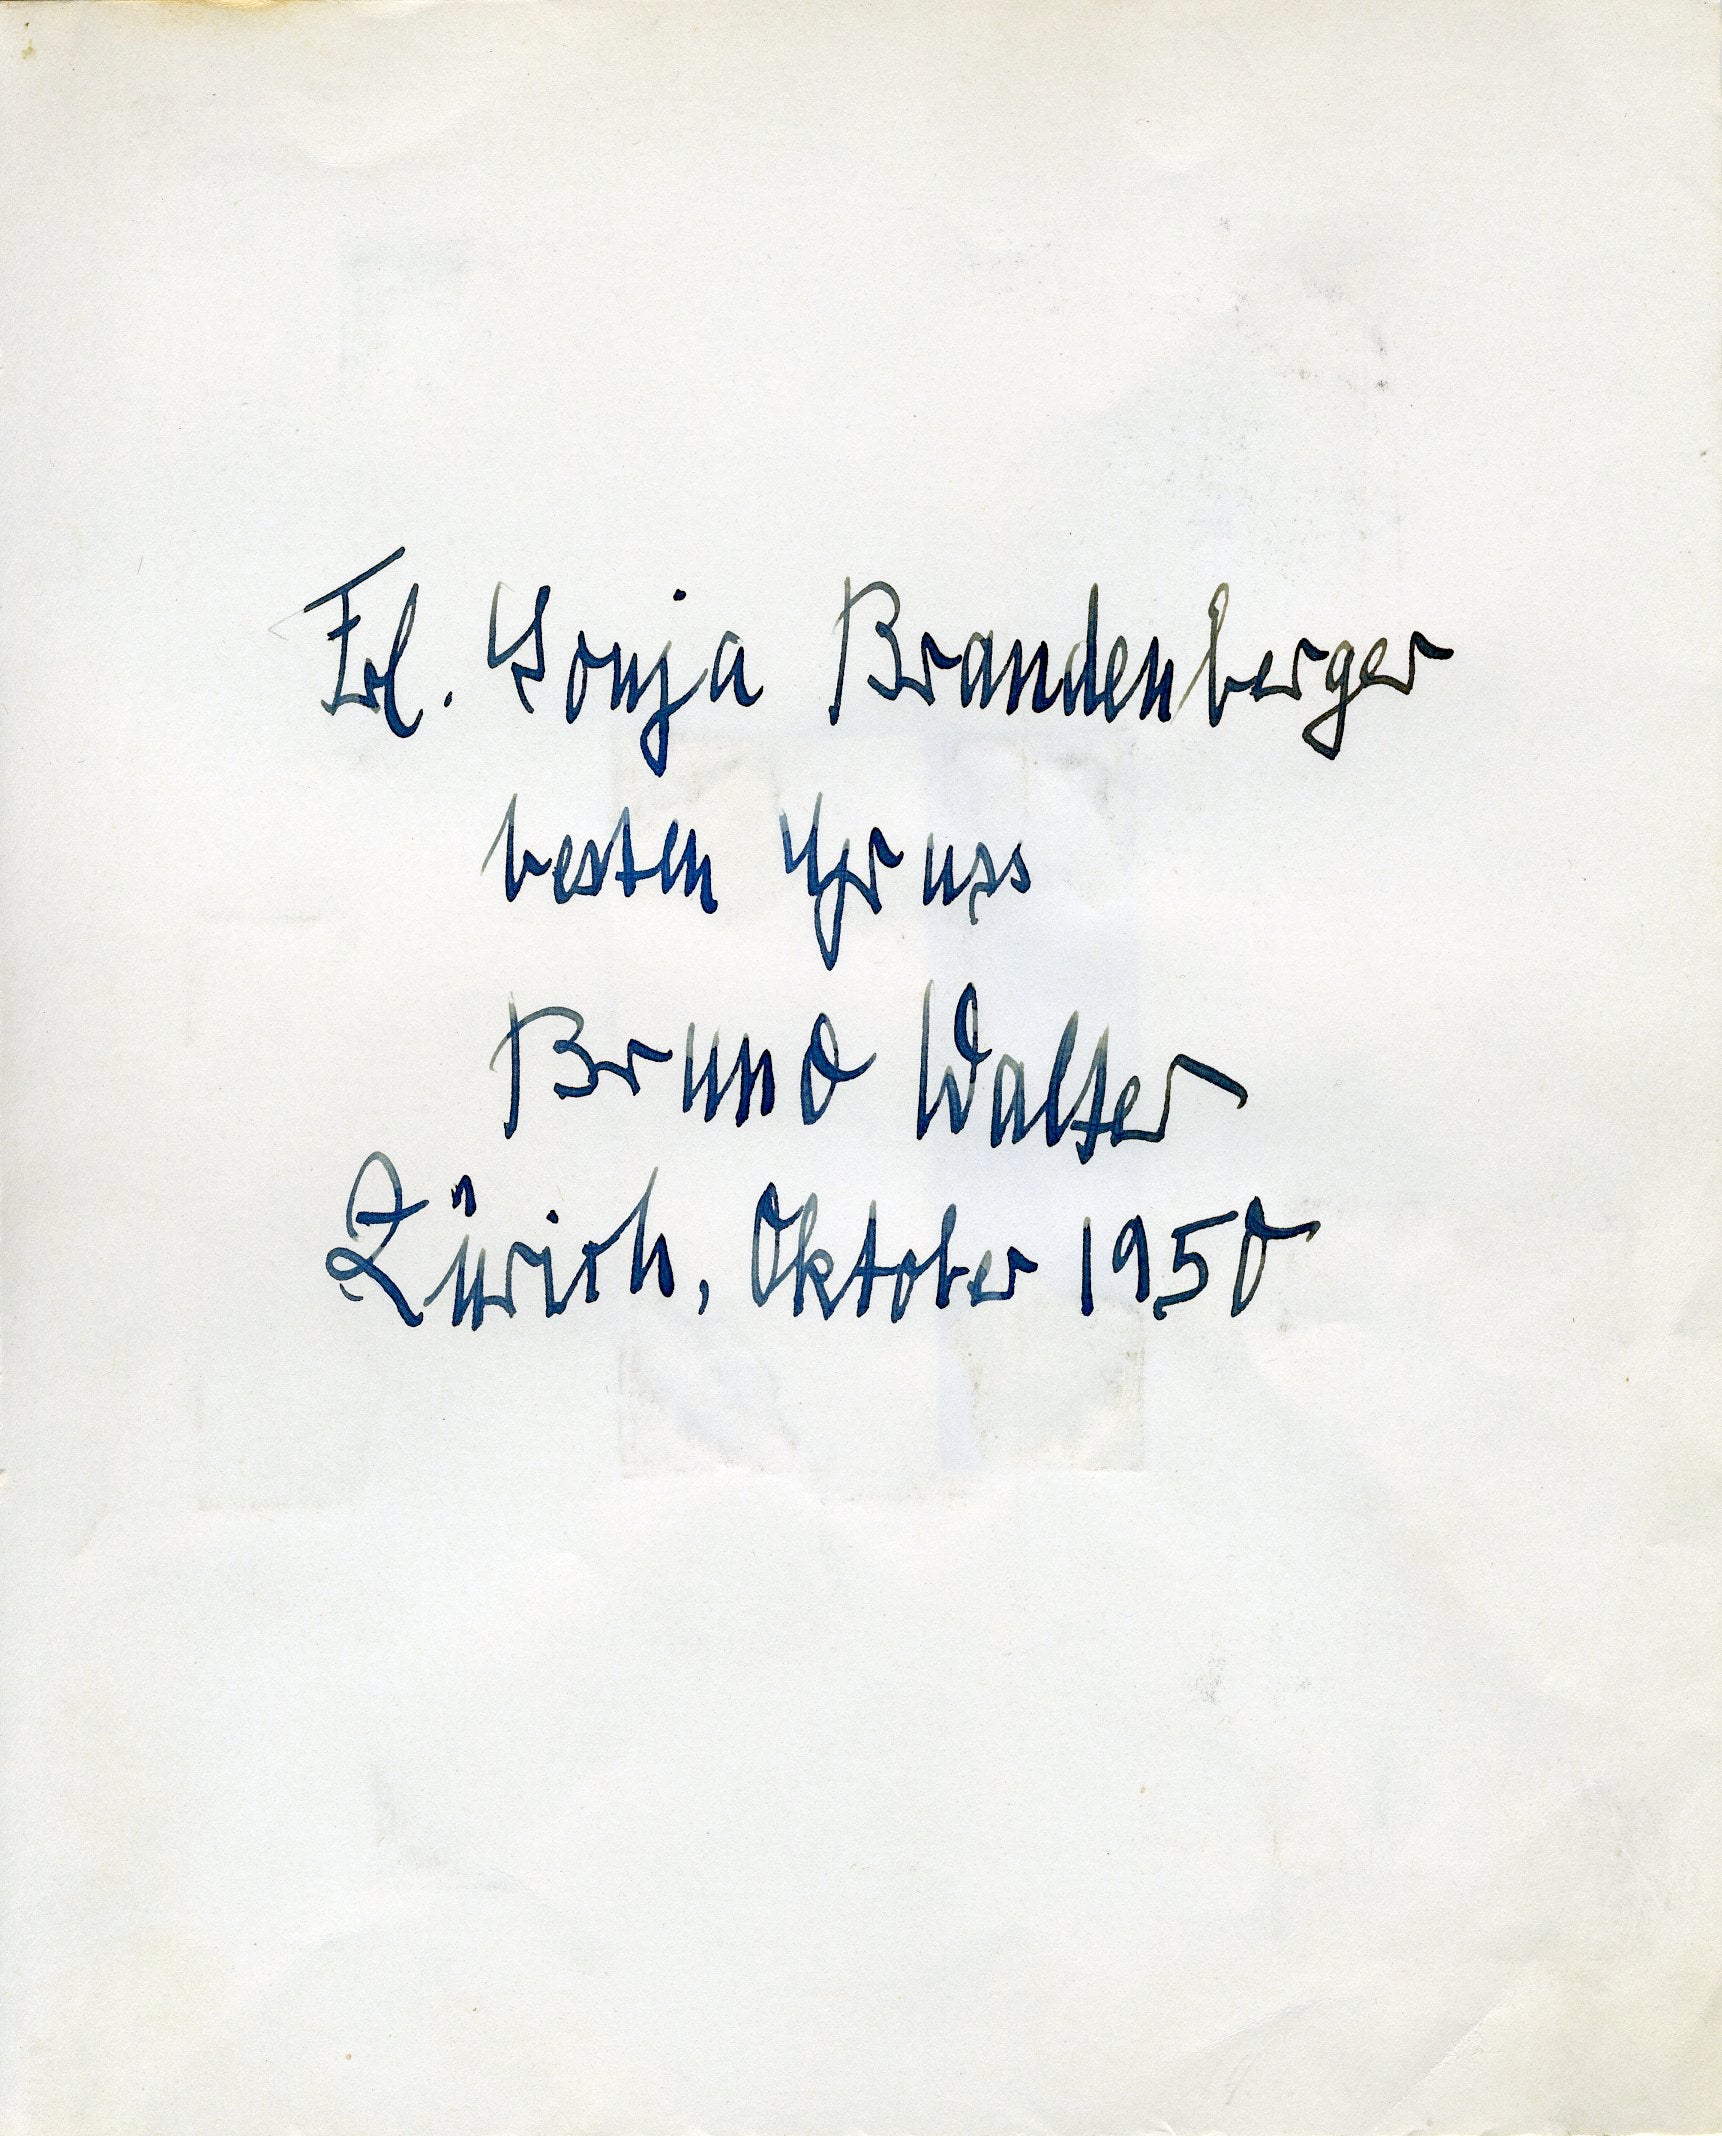 Frl. Sonja Brandenberger
besten Gruss
Bruno Walter
Zürich, Oktober 1950